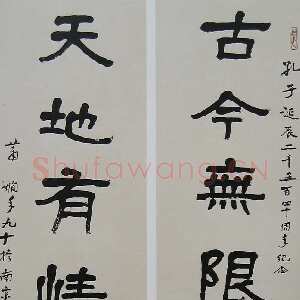 古今無限
孔子誕辰二千五百四十周年紀念
天地有情
蕭嫻年九十於南京
Shufawang.CN